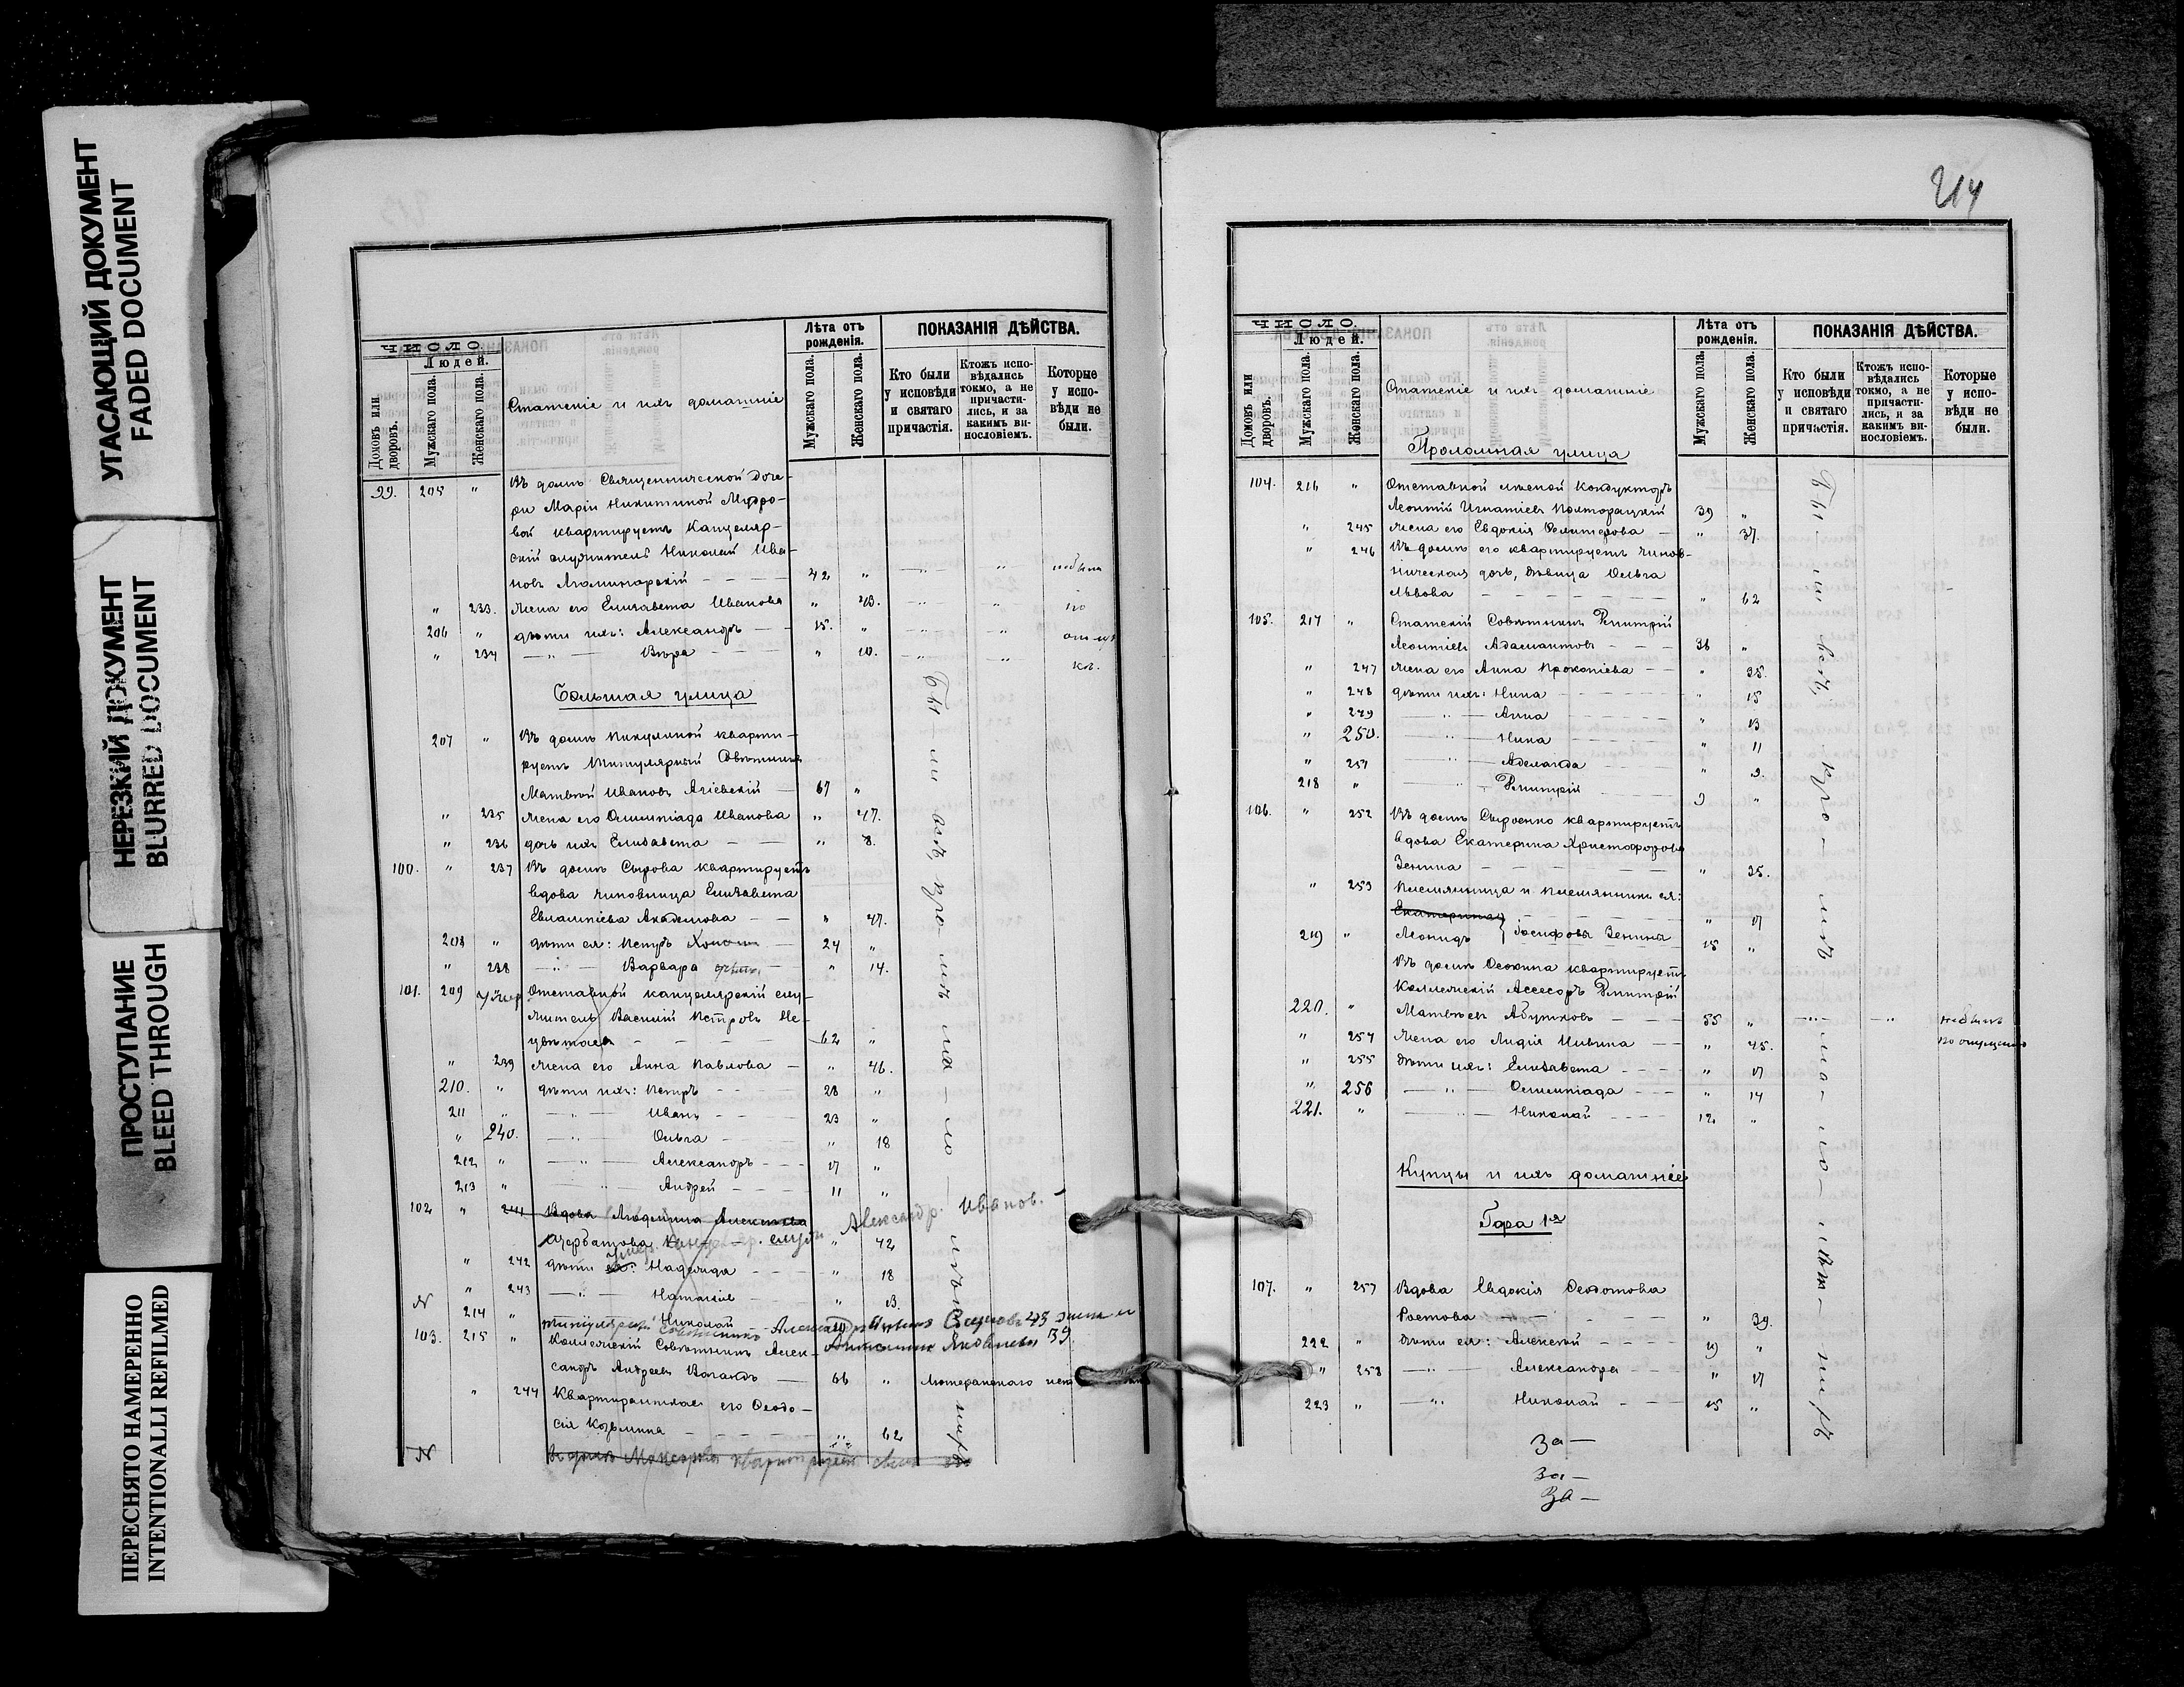 УГАСАЮЩИЙ ДОКУМЕНТ
FADED DOCUMENT
НЕРЕЗКИЙ ДОКУМЕНТ
BLURRED DOCUMENT
ПРОСТУПАНИЕ
BLEED THROUGH
ПЕРЕСНЯТО НАМЕРЕННО
INTENTIONALLI REFILMED
ЧИСЛО.
Людей.
Домовъ или дворовъ.
Мужскаго пола.
Женскаго пола.
Статскіе и ихъ домашніе
Лѣта отъ рожденія.
Мужскаго пола.
Женскаго пола.
ПОКАЗАНІЯ ДѢЙСТВА.
Кто были у исповѣди и святаго причастія.
Ктожъ исповѣдались токмо, а не причастились, и за какимъ винословіемъ.
Которые у исповѣди не были.
99. 205 " Въ домѣ Священнической доче-
ри Маріи Никитиной
вой квартируетъ Канцеляр-
скій служитель Николай Ива-
новъ 42 "
" 233. жена его Елизавета Иванова "
206 " дѣти ихъ: Александръ 15. "
" 234 Вѣра " 10.
Большая улица
207 " Въ домѣ Никулиной кварти-
руетъ Титулярный Совѣтникъ
Матвей Ивановъ 67 "
" 235 жена его Олимпіада Иванова " 47.
" 236 дочь ихъ Елизавета " 8.
100. " 237 Въ домѣ Сырова квартируетъ
вдова чиновница Елизавета
Евлампіева Академова " 47.
208 " дѣти ея: Петръ 24 "
" 238 Варвара " 14.
101. 209 Отставной канцелярскій слу-
житель Василій Петровъ Не-
цвѣтаевъ 62 "
" 239 жена его Анна Павлова " 46.
210. " дѣти ихъ: Петръ 28 "
211 " Иванъ 23 "
" 240. Ольга " 18
212 " Александръ 17 "
213 " Андрей 11 "
102 " 241 Вдова Людмила Алексѣева Александр. Иванов.
Щербатова " 42
" 242 дѣти ея: Надежда " 18
" 243 Наталія " 13.
214 " Николай
103. 215 " Коллежскій Совѣтникъ Алек-
сандръ Андреевъ 66 " Лютеранскаго
" 244 Квартирантка его Ѳеодо-
сія Козьмина " 62
214
ЧИСЛО.
Людей.
Домовъ или дворовъ.
Мужскаго пола.
Женскаго пола.
Статскіе и ихъ домашніе
Лѣта отъ рожденія.
Мужскаго пола.
Женскаго пола.
ПОКАЗАНІЯ ДѢЙСТВА.
Кто были у исповѣди и святаго причастія.
Ктожъ исповѣдались токмо, а не причастились, и за какимъ винословіемъ.
Которые у исповѣди не были.
Проломная улица
104. 216 " Отставной лѣсной Кондукторъ
Леонтій Игнатіевъ Полторацкій 39 "
" 245 жена его Евдокія " 37.
" 246 Въ домѣ его квартируетъ чинов-
ническая дочь, дѣвица Ольга
Львова " 62
105. 217 " Статскій Совѣтникъ Дмитрій
Леонтіевъ Адамантовъ 38 "
" 247 жена его Анна Прокопіева " 35.
" 248 дѣти ихъ: Нина " 15
" 249 Анна " 13
" 250. Нина " 11
" 251 Аделаида " 9.
218 " Дмитрій "
106. " 252 Въ домѣ Сыроенко квартируетъ
вдова Екатерина Христофорова
Зенина " 35.
" 253 Племянница и племянникъ ея:
Екатерина " 17
219 " Леонидъ } Іосифовы Зенины 15 "
Въ домѣ Ѳеокина квартируетъ
Коллежскій Ассесоръ Дмитрій
220. " Матвѣевъ Абутковъ 55 "
" 254 жена его Лидія Ильина " 45.
" 255 дѣти ихъ: Елизавета " 17
" 256 Олимпіада " 14
221. " Николай 12 "
Купцы и ихъ домашніе
Гора 1я
107. " 257 Вдова Евдокія Ѳедотова
Ростова " 39.
222 " дѣти ея: Алексѣй 19 "
" 258 Александра " 17
223 " Николай 15 "
За—
за—
За—